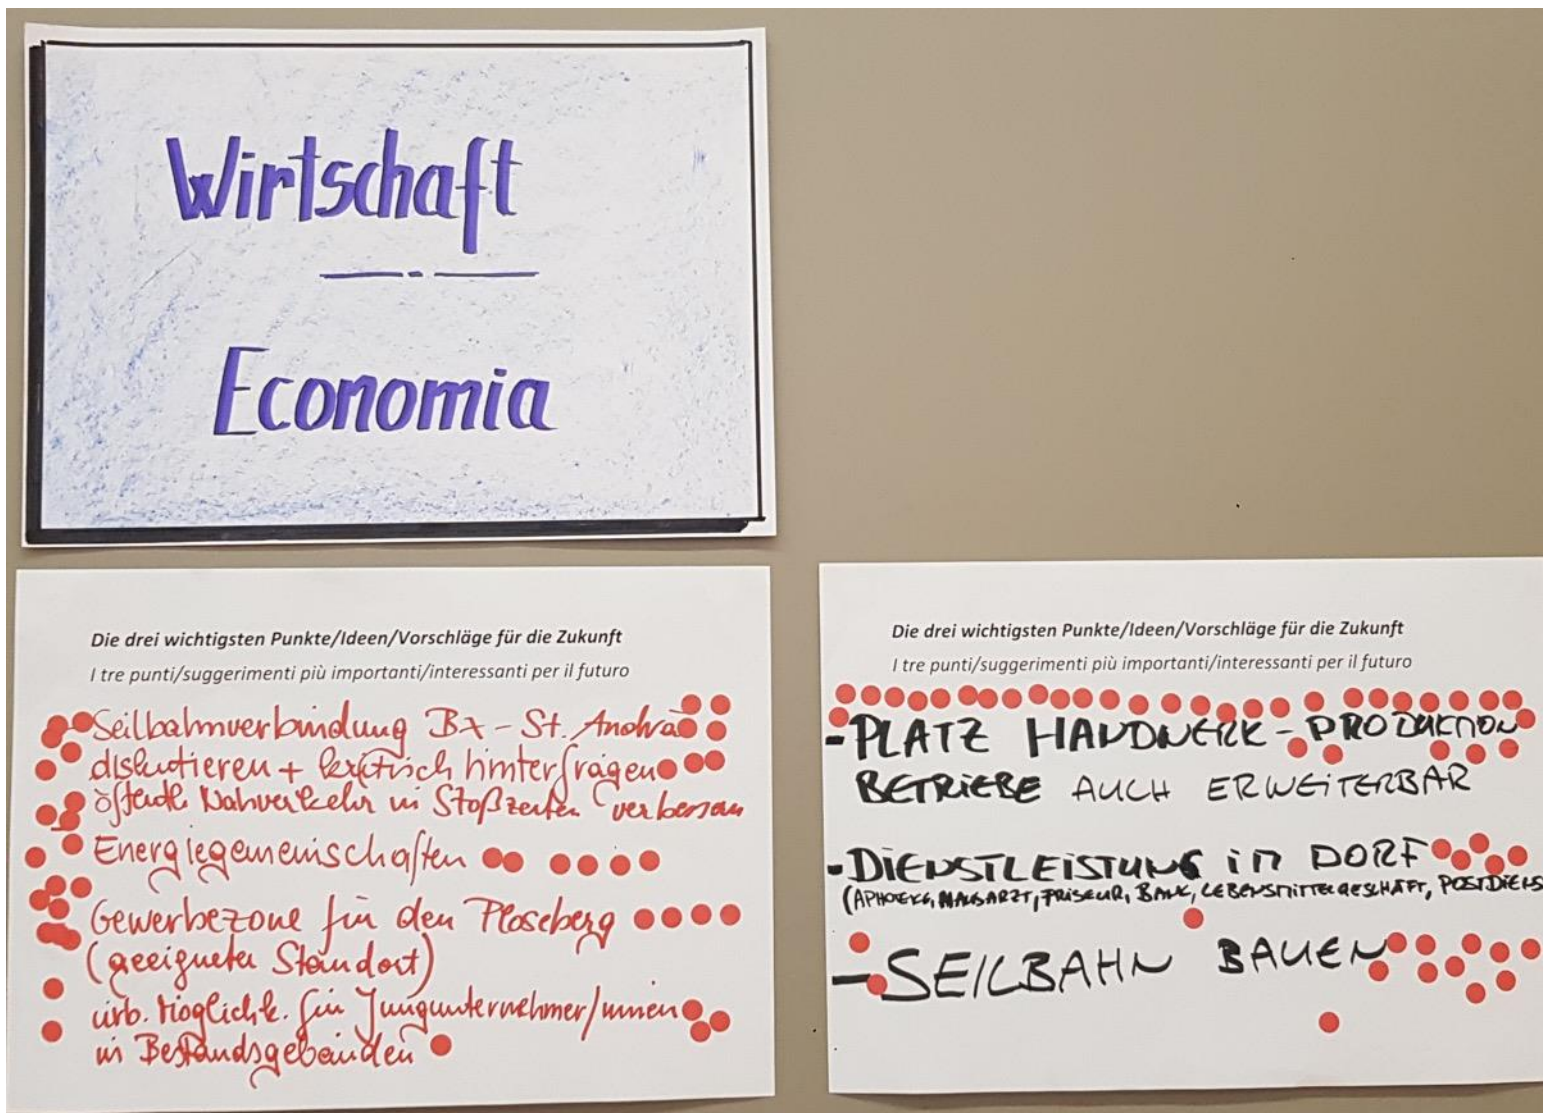 Wirtschaft
Economia
Die drei wichtigsten Punkte/Ideen/Vorschläge für die Zukunft
I tre punti/suggerimenti più importanti/interessanti per il futuro
Seilbahnverbindung BX - St. Andrä
diskutieren + kritisch hinterfragen
öffentl. Nahverkehr in Stoßzeiten verbessern
Energiegemeinschaften
Gewerbezone für den Ploseberg
(geeigneter Standort)
urb. Möglichk. für Jungunternehmer/innen
in Bestandsgebäuden
Die drei wichtigsten Punkte/Ideen/Vorschläge für die Zukunft
I tre punti/suggerimenti più importanti/interessanti per il futuro
- PLATZ HANDWERK - PRODUKTION
BETRIEBE AUCH ERWEITERBAR
- DIENSTLEISTUNG IM DORF
(APHOTEKE, HAUSARZT, FRISEUR, BANK, LEBENSMITTELGESCHÄFT, POSTDIENS
- SEILBAHN BAUEN